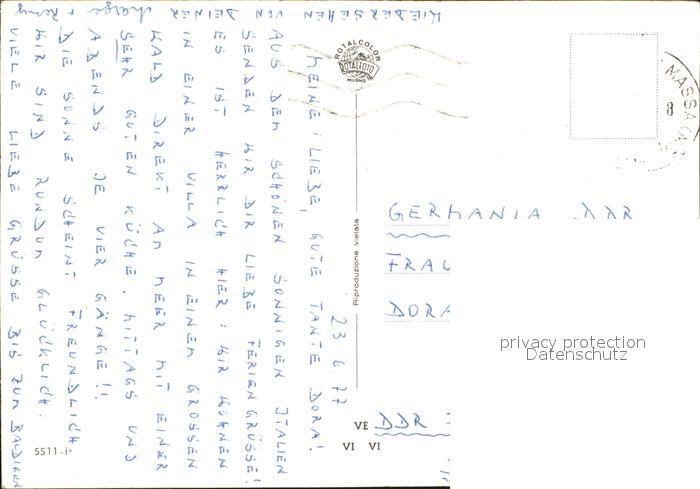 23 6 77
MEINE LIEBE, GUTE TANTE DORA!
AUS DEM SCHÖNEN SONNIGEN ITALIEN
SENDEN WIR DIR LIEBE FERIENGRÜSSE!
ES IST HERRLICH HIER: WIR WOHNEN
IN EINER VILLA IN EINEM GROSSEN
WALD DIREKT AM MEER MIT EINER
SEHR GUTEN KÜCHE, MITTAGS UND
ABENDS JE VIER GÄNGE!!
DIE SONNE SCHEINT FREUNDLICH
WIR SIND RUNDUM GLÜCKLICH.
VIELE LIEBE GRÜSSE BIS ZUM BALDIGEN
WIEDERSEHEN VON DEINER
ROTALCOLOR
ROTALFOTO
MILANO
Riproduzione vietata
MASSA
8
GERMANIA DDR
FRAU
DORA
privacy protection
Datenschutz
VE DDR
VI VI
5511-i